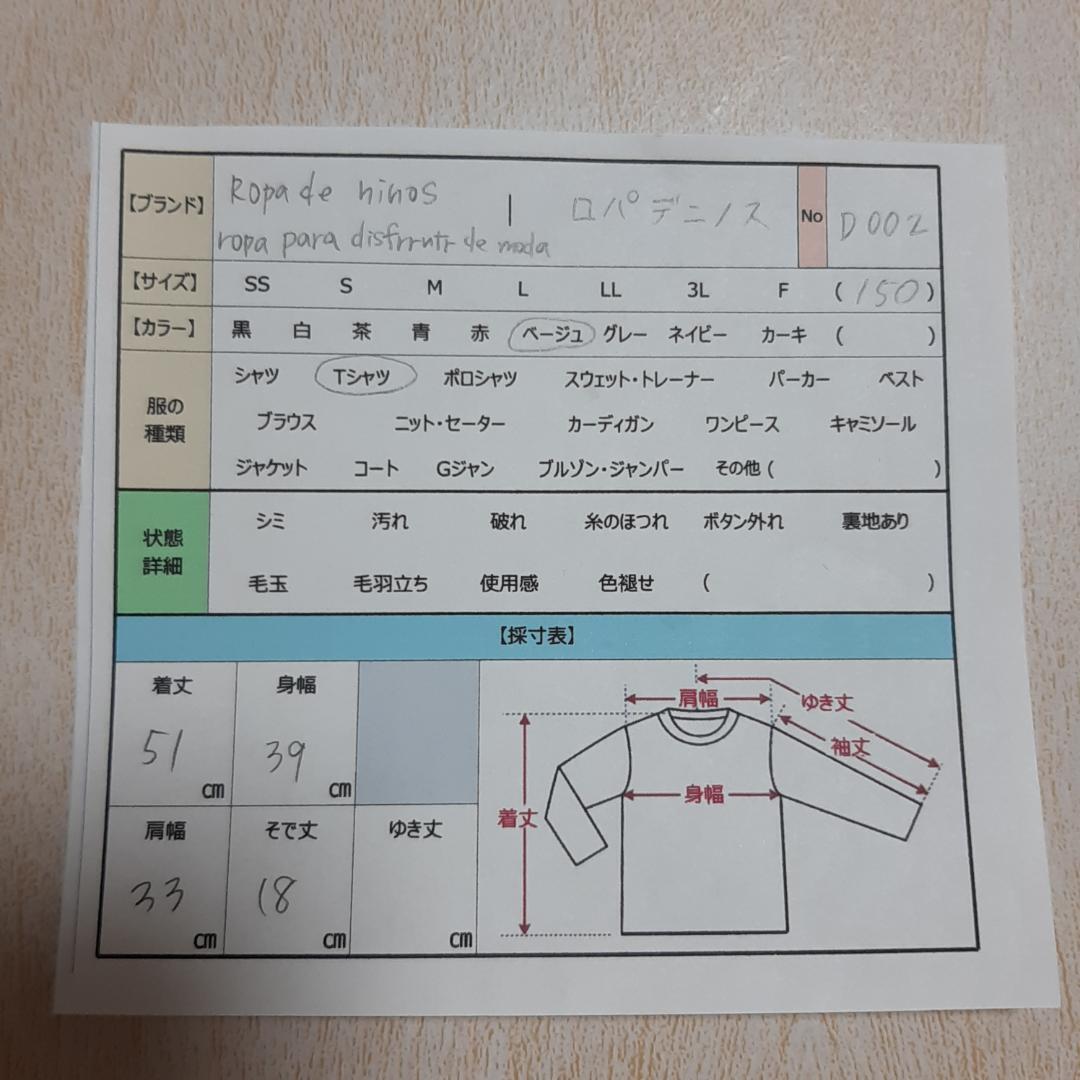 【ブランド】 Ropa de ninos | ロパデニノス No D002
ropa para disfrrutr de moda
【サイズ】 SS S M L LL 3L F (150)
【カラー】 黒 白 茶 青 赤 ベージュ グレー ネイビー カーキ ( )
服の種類
シャツ Tシャツ ポロシャツ スウェット・トレーナー パーカー ベスト
ブラウス ニット・セーター カーディガン ワンピース キャミソール
ジャケット コート Gジャン ブルゾン・ジャンパー その他 ( )
状態詳細
シミ 汚れ 破れ 糸のほつれ ボタン外れ 裏地あり
毛玉 毛羽立ち 使用感 色褪せ ( )
【採寸表】
着丈 身幅
51 cm 39 cm
肩幅 そで丈 ゆき丈
33 cm 18 cm cm
肩幅 ゆき丈
袖丈
着丈 身幅